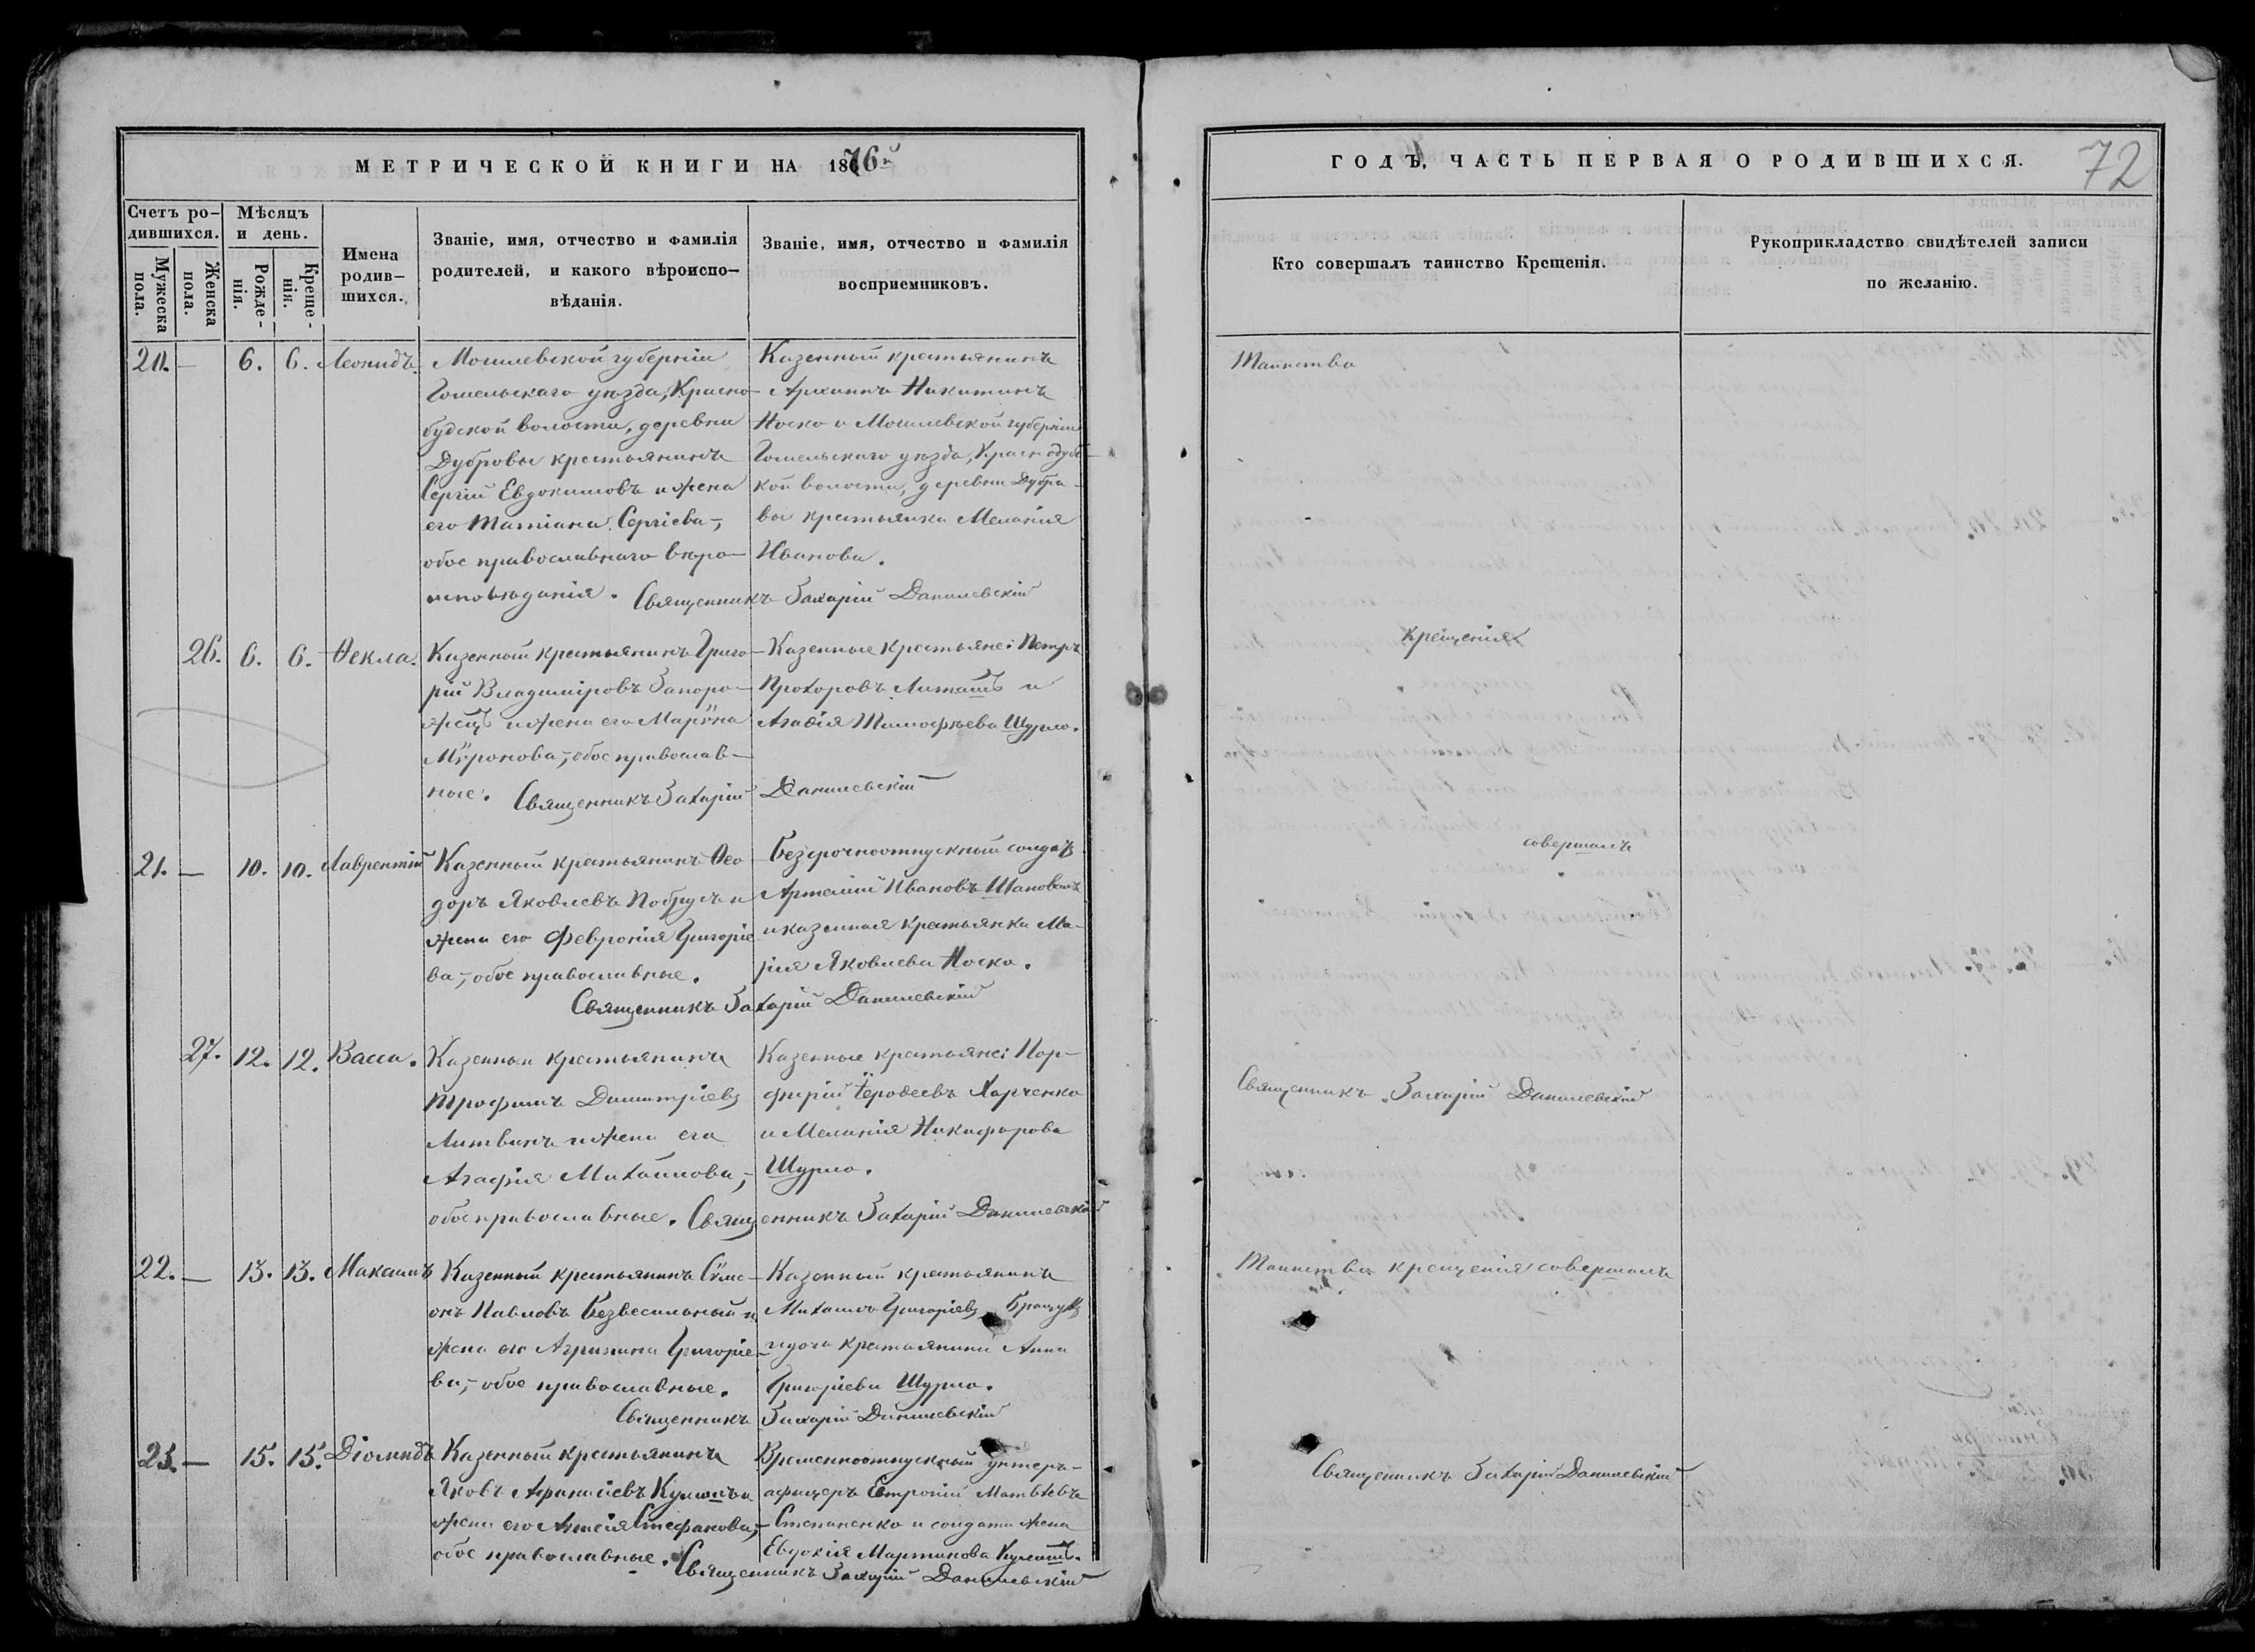 МЕТРИЧЕСКОЙ КНИГИ НА 1876й
Счетъ ро-
дившихся.
Мужеска пола.
Женска пола.
Мѣсяцъ
и день.
Рожде-
нія.
Креще-
нія.
Имена
родив-
шихся.
Званіе, имя, отчество и фамилія
родителей, и какого вѣроиспо-
вѣданія.
Званіе, имя, отчество и фамилія
воспріемниковъ.
20. — 6. 6. Леонидъ.
Могилевской губерніи
Гомельскаго уѣзда, Красно-
будской волости, деревни
Дубровы крестьянинъ
Сергій Евдокимовъ и жена
его Татіана Сергіева,
обое православнаго вѣро-
исповѣданія.
Казенный крестьянинъ
Архипъ Никитинъ
Носко и Могилевской губерніи
Гомельскаго уѣзда, Краснобудс-
кой волости, деревни Дубро-
вы крестьянка Меланія
Иванова.
Священникъ Захарій Данилевскій
26. 6. 6. Ѳекла.
Казенный крестьянинъ Григо-
рій Владиміровъ Запоро-
жецъ и жена его Марѵна
Мѵронова, обое православ-
ные.
Казенные крестьяне: Петръ
Прохоровъ Литашъ и
Агаѳія Тимофѣева Шурло.
Священникъ Захарій Данилевскій
21. — 10. 10. Лаврентій
Казенный крестьянинъ Ѳео
доръ Яковлевъ Побрусъ и
жена его Февронія Григоріе
ва, обое православные.
Безсрочноотпускный солдатъ
Артемій Ивановъ Шаповалъ
и казенная крестьянка Ма-
рія Яковлева Носко.
Священникъ Захарій Данилевскій
27. 12. 12. Васса.
Казенный крестьянинъ
Трофимъ Димитріевъ
Литвинъ и жена его
Агафія Михайлова,
обое православные.
Казенные крестьяне: Пор-
фирій Харченко
и Меланія Никифорова
Шурло.
Священникъ Захарій Данилевскій
22. — 13. 13. Максимъ
Казенный крестьянинъ Сѵме-
онъ Павловъ Безвесильный и
жена его Агрипина Григоріе-
ва, обое православные.
Казенный крестьянинъ
Михаилъ Григоріевъ
крестьянина Анна
Григоріева Шурло.
Священникъ Захарій Данилевскій
23. — 15. 15. Діомидъ
Казенный крестьянинъ
Яковъ Афанасіевъ Кулишъ и
жена его Стефанова,
обое православные.
Временноотпускный унтеръ-
афицеръ Матвѣевъ
Степаненко и солдата жена
Евдокія Мартинова Кулишъ.
Священникъ Захарій Данилевскій
ГОДЪ, ЧАСТЬ ПЕРВАЯ О РОДИВШИХСЯ.
72
Кто совершалъ таинство Крещенія.
Рукоприкладство свидѣтелей записи
по желанію.
Таинство
крещенія
совершалъ
Священникъ Захарій Данилевскій
Таинство крещенія совершалъ
Священникъ Захарій Данилевскій